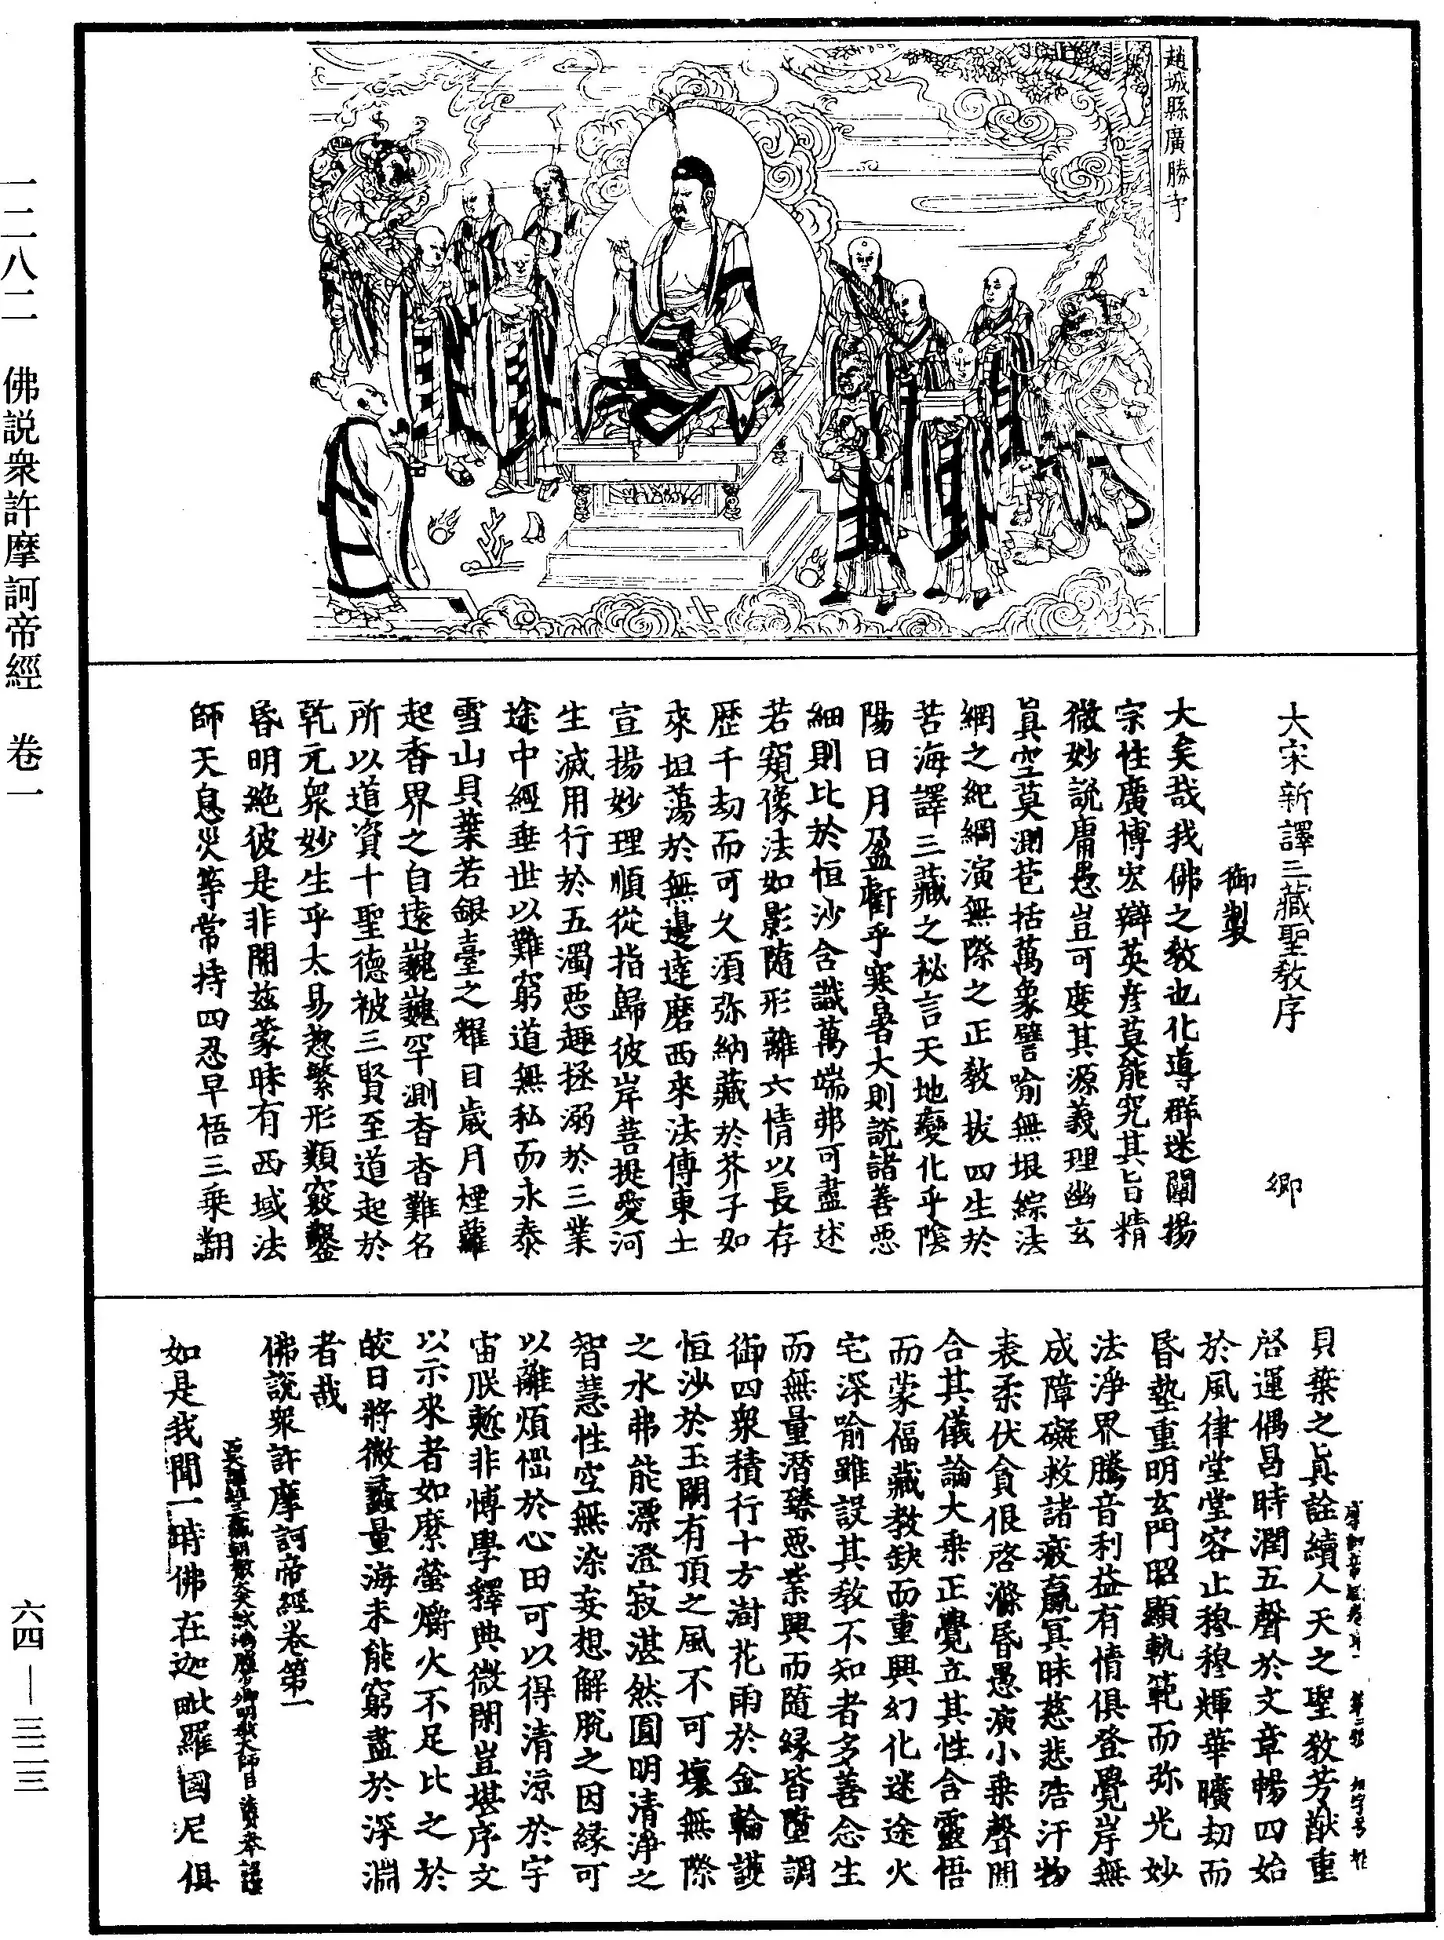 趙城縣廣勝寺
大宋新譯三藏聖教序 卿
御製
大矣哉我佛之教也化導群迷闡揚
宗性廣博宏辯英彥莫能究其旨精
微妙說庸愚豈可度其源義理幽玄
真空莫測苞括萬象譬喻無垠綜法
網之紀綱演無際之正教拔四生於
苦海譯三藏之祕言天地變化乎陰
陽日月盈虧乎寒暑大則說諸善惡
細則比於恒沙含識萬端弗可盡述
若窺像法如影隨形離六情以長存
歷千劫而可久須弥納藏於芥子如
來坦蕩於無邊達磨西來法傳東土
宣揚妙理順從指歸彼岸菩提愛河
生滅用行於五濁惡趣拯溺於三業
途中經垂世以難窮道無私而永泰
雪山貝葉若銀臺之耀目歲月煙蘿
起香界之自遠巍巍罕測杳杳難名
所以道資十聖德被三賢至道起於
乾元眾妙生乎太易惣繁形類竅鑿
昏明絶彼是非開茲蒙昧有西域法
師天息災等常持四忍早悟三乘翻
貝葉之真詮續人天之聖教芳猷重
啓運偶昌時潤五聲於文章暢四始
於風律堂堂容止穆穆輝華曠劫而
昏墊重明玄門昭顯軌範而弥光妙
法淨界騰音利益有情俱登覺岸無
成障礙救諸疲羸冥昧慈悲浩汗物
表柔伏貪佷啓滌昏愚演小乘聲聞
合其儀論大乘正覺立其性含靈悟
而蒙福藏教缺而重興幻化迷途火
宅深喻雖設其教不知者多善念生
而無量潛臻惡業興而隨緣皆墮調
御四眾積行十方澍花雨於金輪護
恒沙於玉闕有頂之風不可壞無際
之水弗能漂澄寂湛然圓明清淨之
智慧性空無染妄想解脫之因緣可
以離煩惱於心田可以得清涼於宇
宙朕慙非博學釋典微閑豈堪序文
以示來者如縻螢爝火不足比之於
皎日將微蠡量海未能窮盡於深淵
者哉
佛說眾許摩訶帝經卷第一
西天譯經三藏朝散大夫試鴻臚少卿明教大師臣法賢奉詔譯
如是我聞一時佛在迦毗羅國尼俱
一二八二 佛説衆許摩訶帝經 卷一
六四—三二三